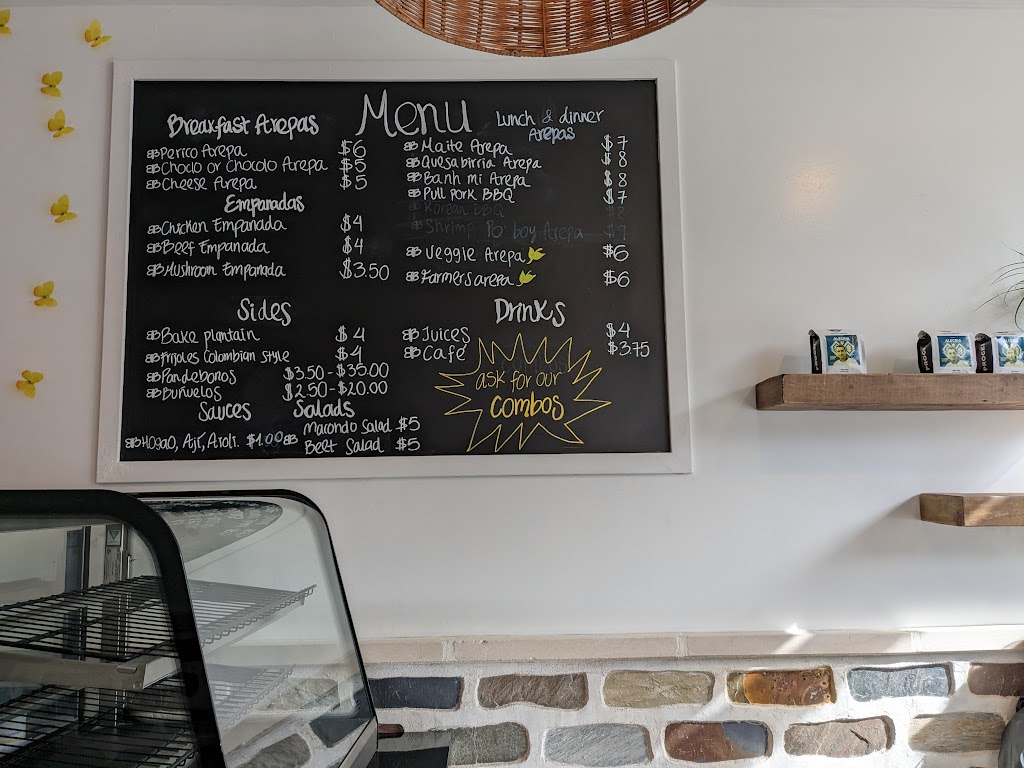 Menu
Breakfast Arepas
Perico Arepa $6
Choclo or Chocolo Arepa $5
Cheese Arepa $5
Empanadas
Chicken Empanada $4
Beef Empanada $4
Mushroom Empanada $3.50
Sides
Bake plantain $4
Frijoles Colombian Style $4
Pandebonos $3.50 - $35.00
Buñuelos $2.50 - $20.00
Sauces
Hogao, Ají, Aioli. $1.00
Salads
Macondo Salad $5
Beet Salad $5
Lunch & dinner
Arepas
Maite Arepa $7
Quesabirria Arepa $8
Banh mi Arepa $8
Pull Pork BBQ $7
Korean BBQ $8
Shrimp Po' boy Arepa $9
Veggie Arepa $6
Farmers arepa $6
Drinks
Juices $4
Café $3.75
ask for our
combos